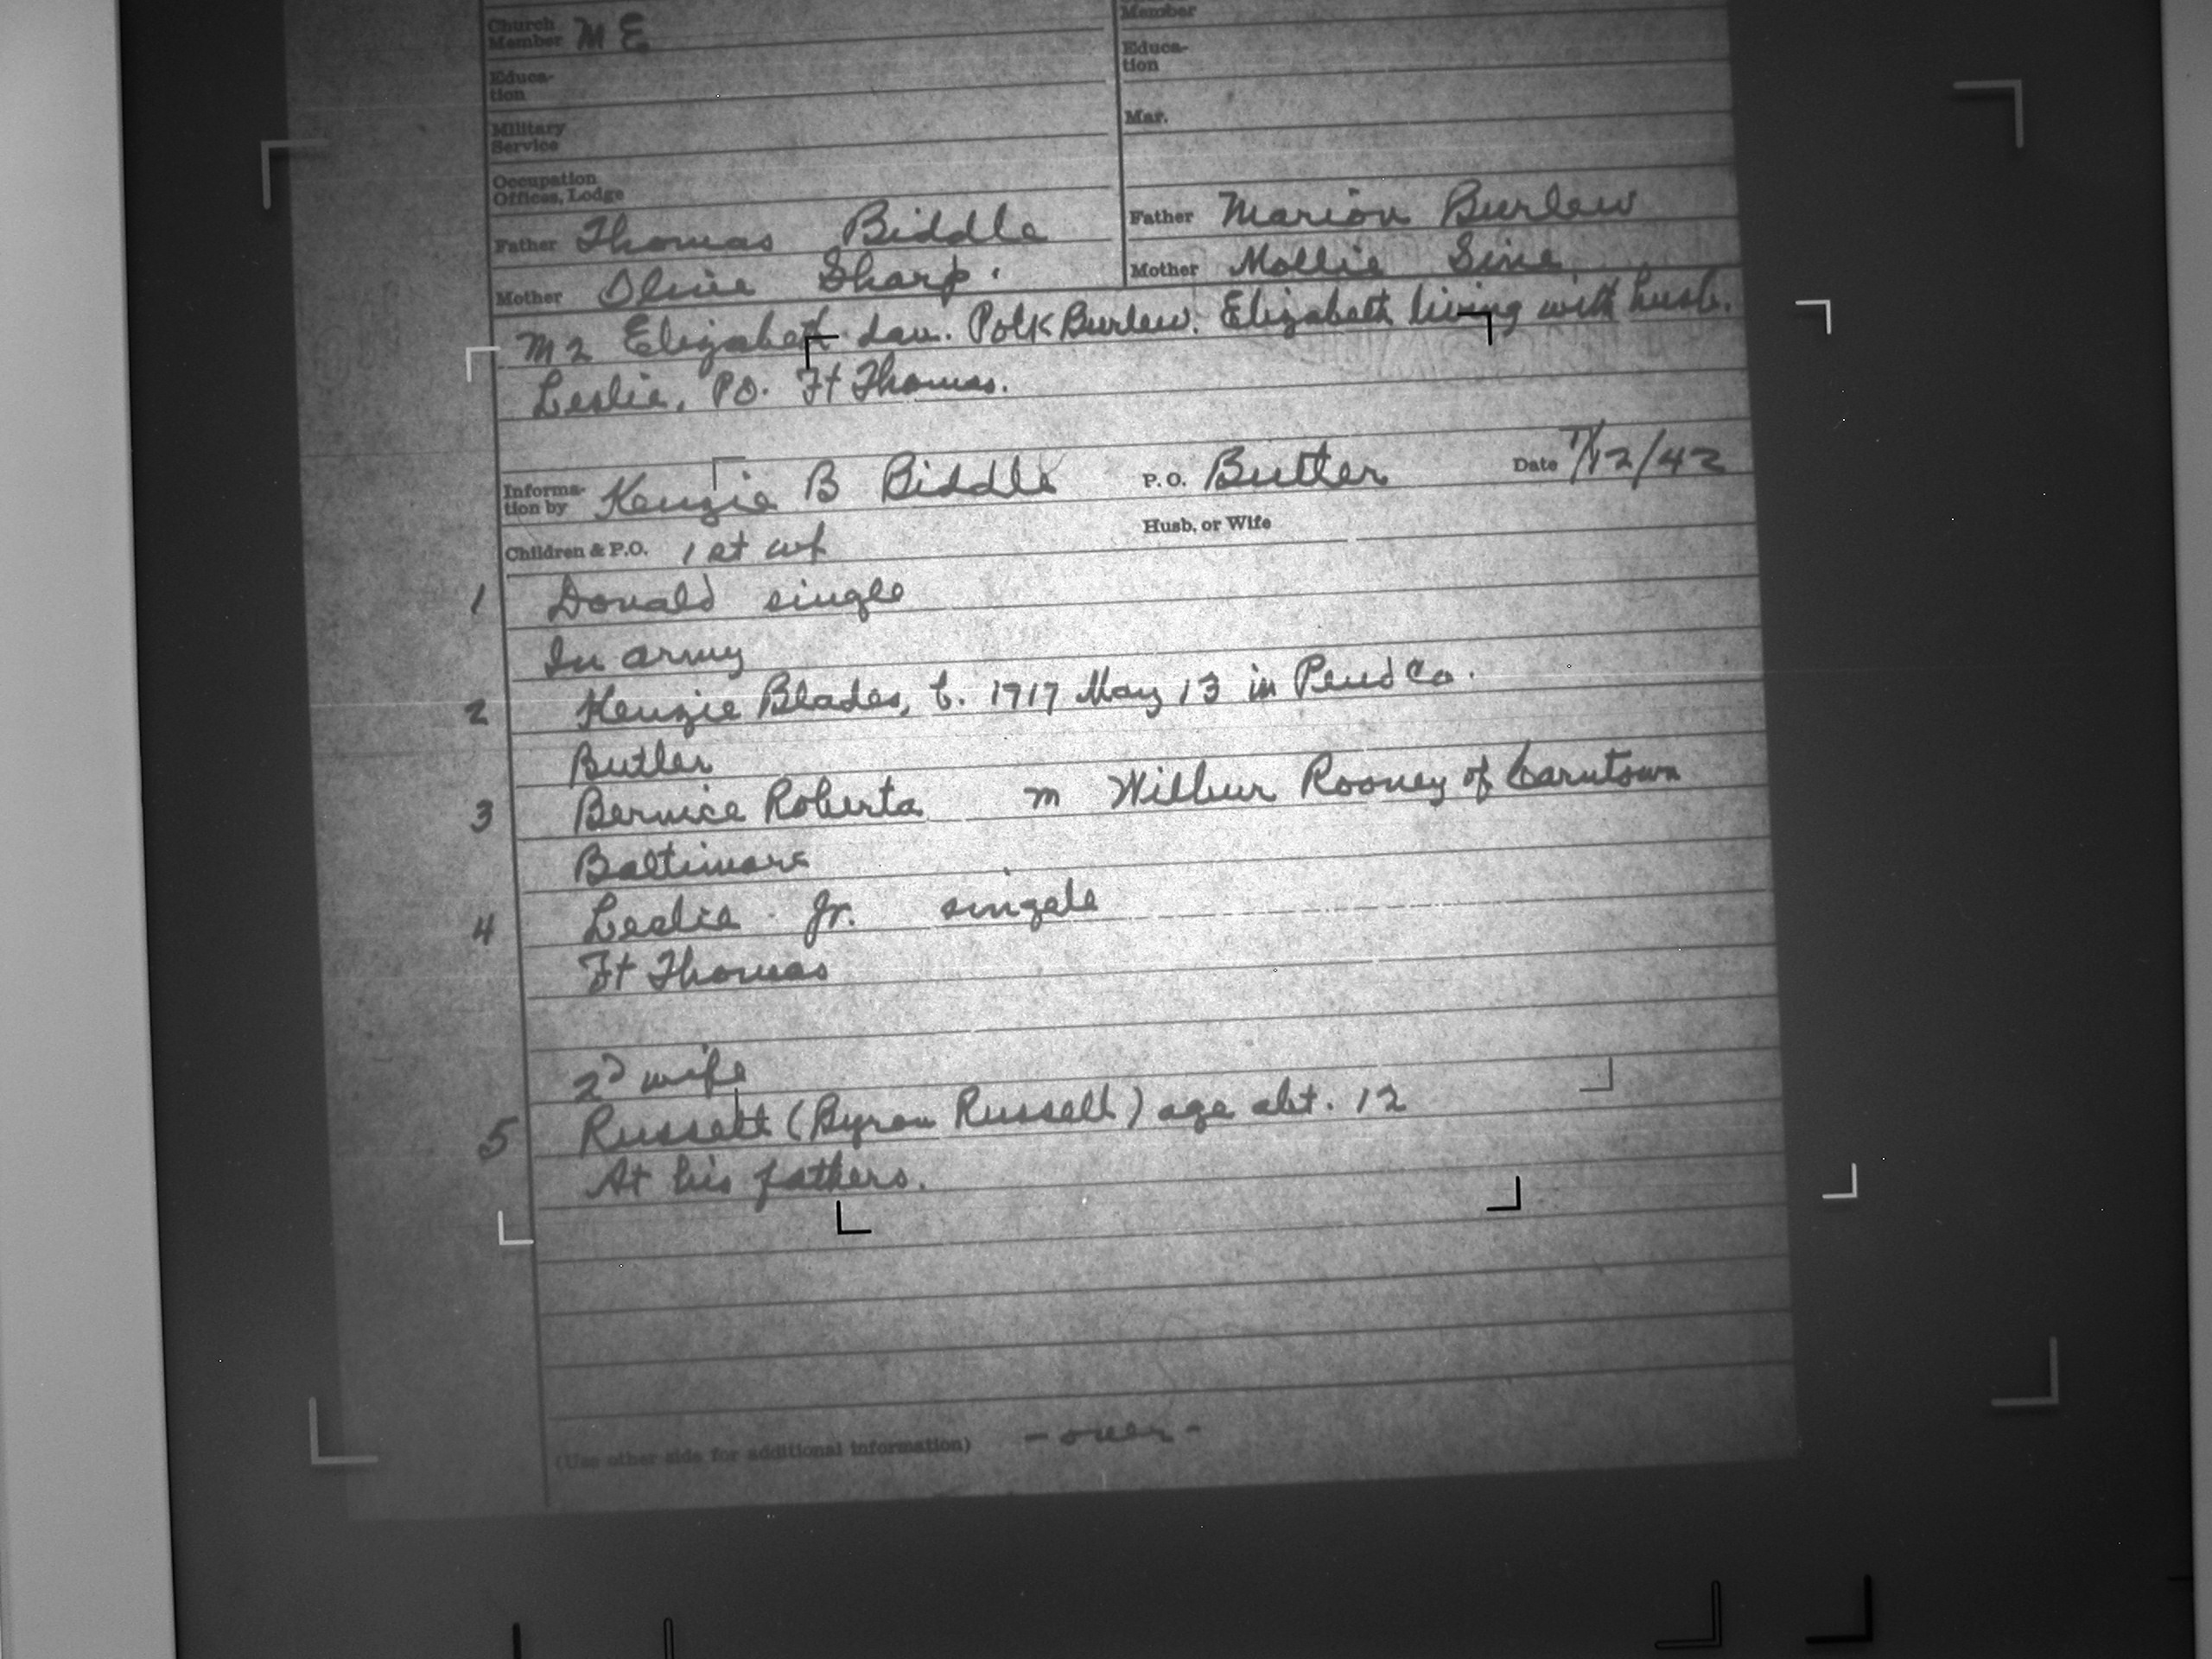 Church Member M E
Member
Educa-tion
Educa-tion
Military Service
Mar.
Occupation Offices, Lodge
Father Thomas Biddle
Father Marion Burlew
Mother Olive Sharp.
Mother Mollie Sine
M 2 Elizabeth dau. Polk Burlew. Elizabeth living with husb.
Leslie, PO. Ft Thomas.
Informa-tion by Kenzie B Biddle P.O. Butler Date /12/42
Children & P.O. 1st wf Husb, or Wife
1 Donald single
In army
2 Kenzie Blades, b. 1917 May 13 in Pend Co.
Butler
3 Bernice Roberta m Wilbur Rooney of
Baltimore
4 Leslie Jr. single
Ft Thomas
2d wife
5 Russell (Byron Russell) age abt. 12
At his fathers.
(Use other side for additional information) - over -